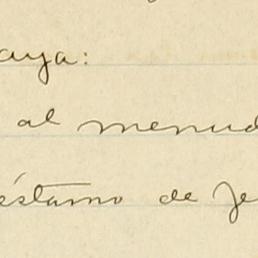 aya:
al menud
éstamo de Je